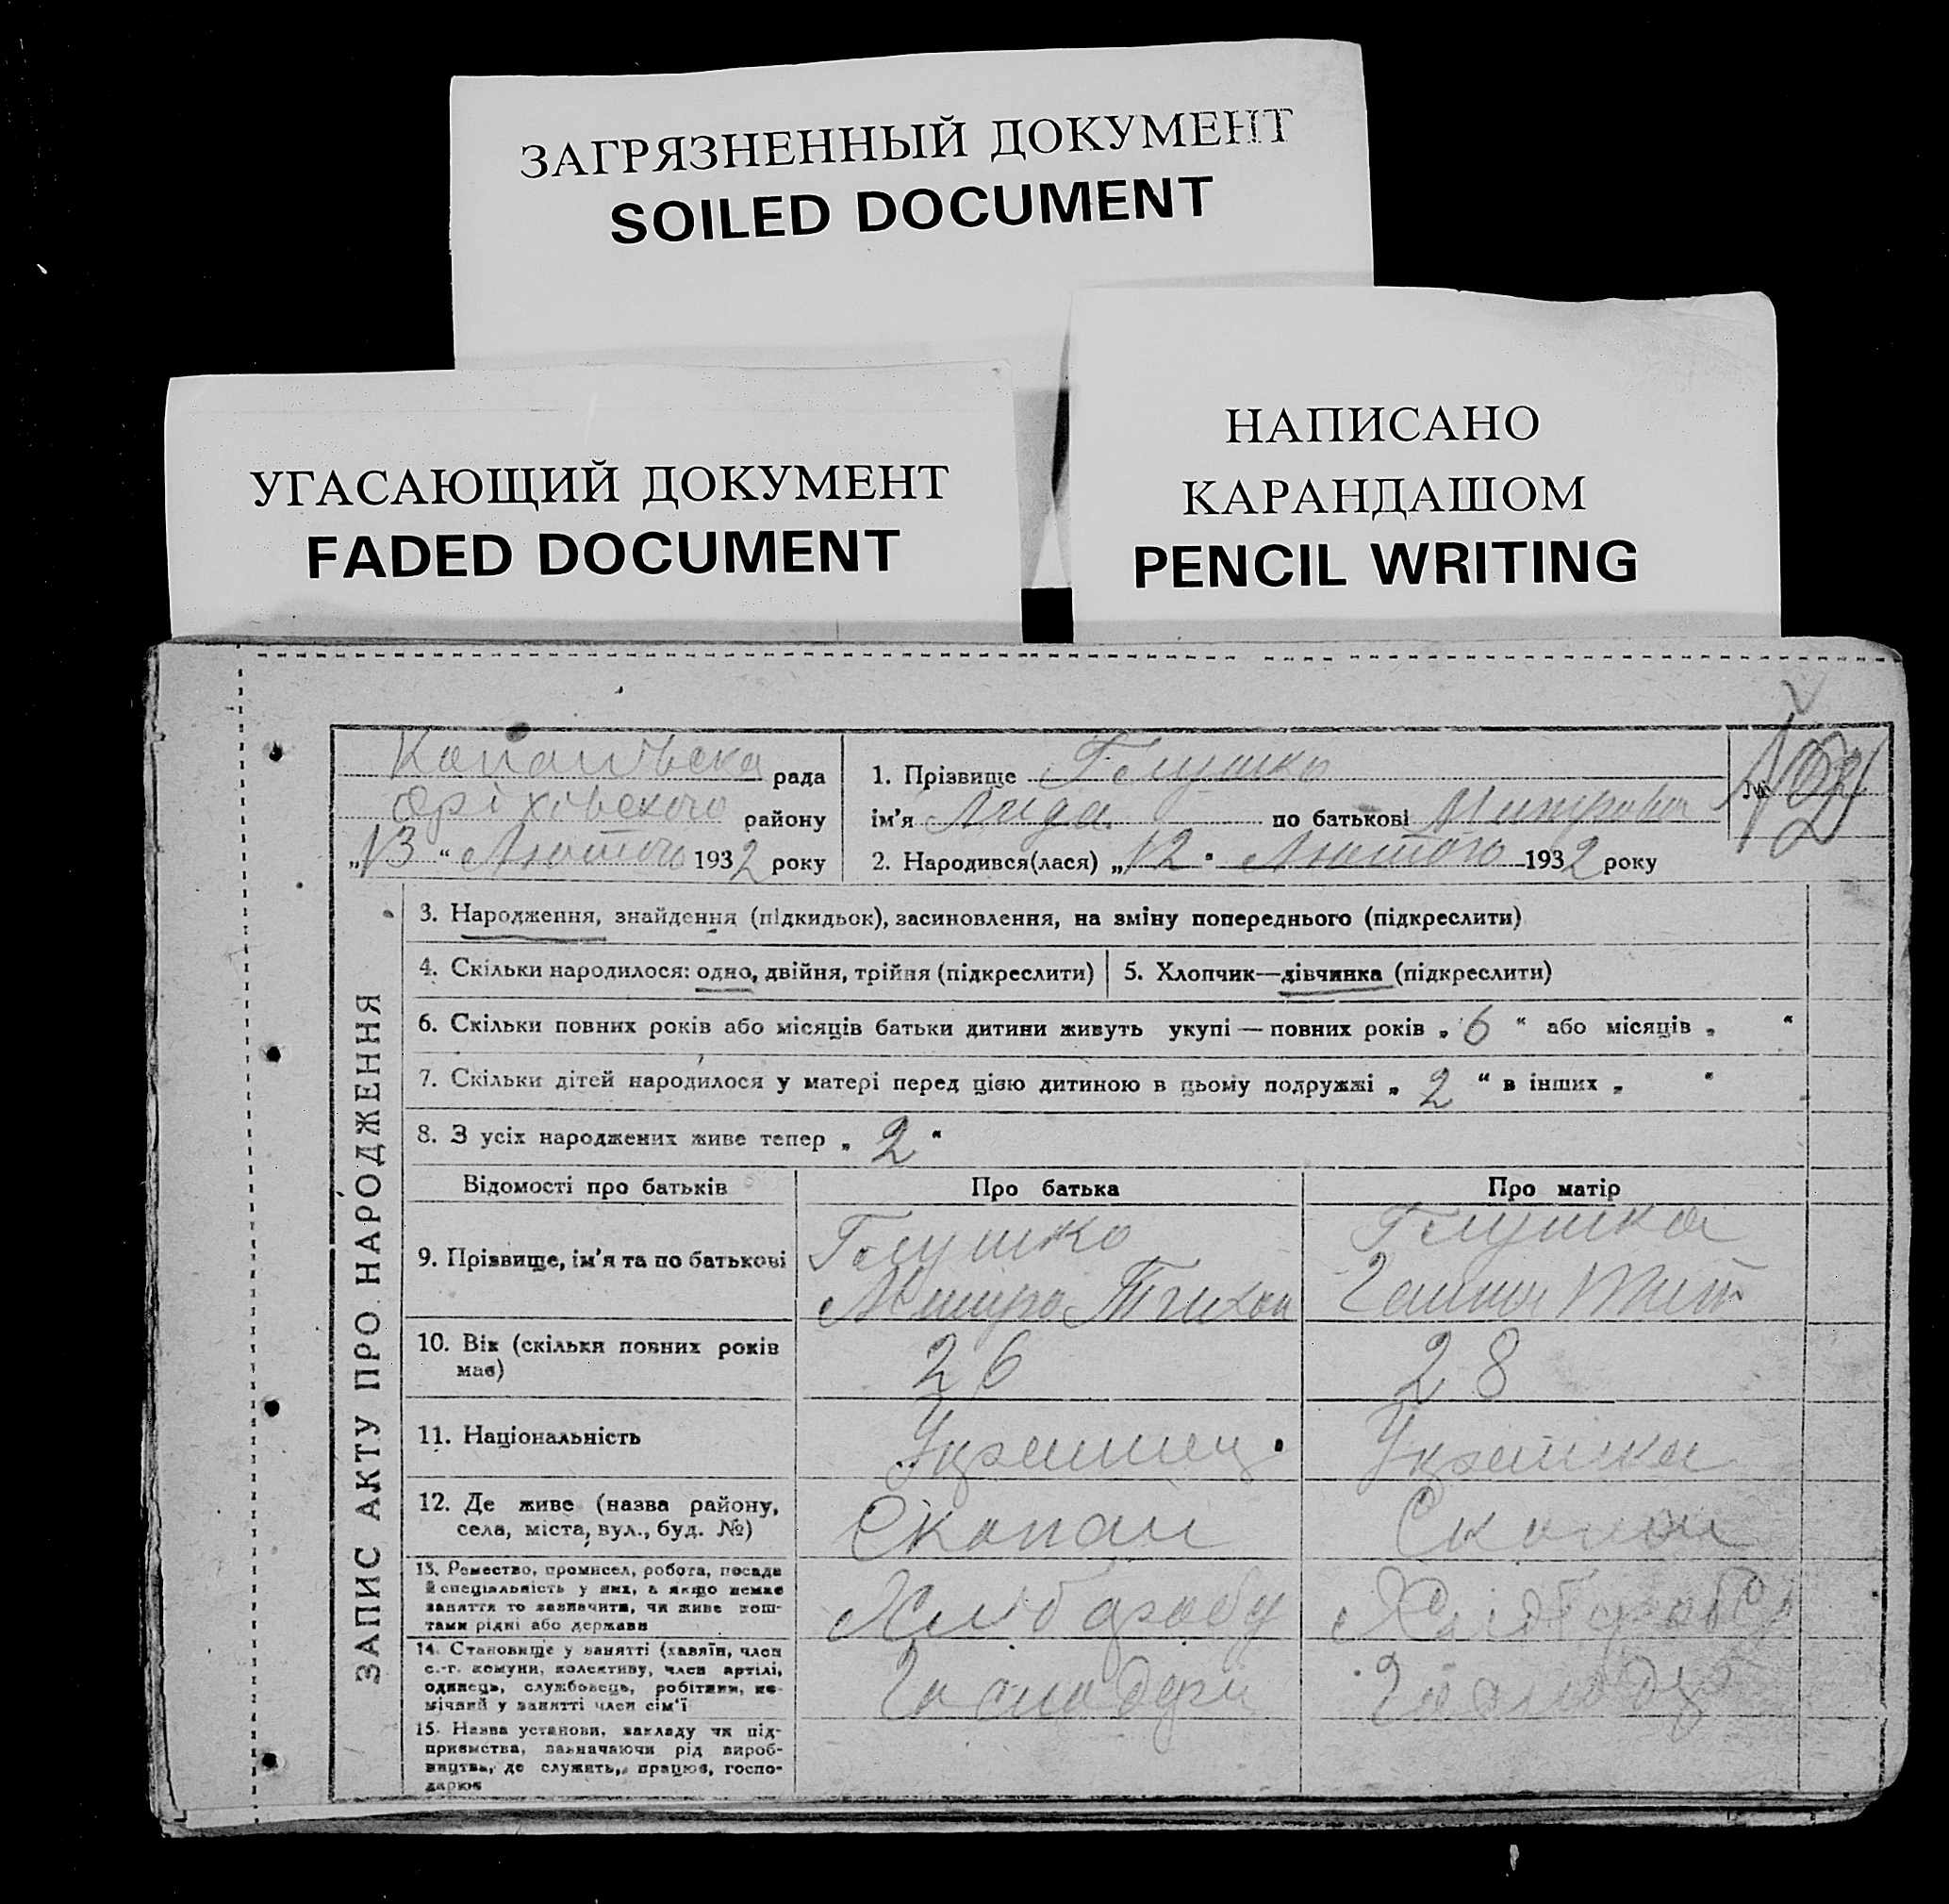 ЗАГРЯЗНЕННЫЙ ДОКУМЕНТ
SOILED DOCUMENT
УГАСАЮЩИЙ ДОКУМЕНТ
FADED DOCUMENT
НАПИСАНО
КАРАНДАШОМ
PENCIL WRITING
ЗАПИС АКТУ ПРО НАРОДЖЕННЯ
Копанівська рада
Оріхівського району
„13“ Лютого 1932 року
1. Прізвище Глушко
ім'я Лида по батькові
2. Народився(лася) „12“ Лютого 1932 року
№
3. Народження, знайдення (підкидьок), засиновлення, на зміну попереднього (підкреслити)
4. Скільки народилося: одно, двійня, трійня (підкреслити)
5. Хлопчик—дівчинка (підкреслити)
6. Скільки повних років або місяців батьки дитини живуть укупі — повних років „6“ або місяців „ “
7. Скільки дітей народилося у матері перед цією дитиною в цьому подружжі „2“ в інших „ “
8. З усіх народжених живе тепер „2“
Відомості про батьків Про батька Про матір
9. Прізвище, ім'я та по батькові
Глушко
Тихон
Глушка
10. Вік (скільки повних років
має)
26
28
11. Національність
Українец
Українка
12. Де живе (назва району,
села, міста, вул., буд. №)
Скопані
Скопані
13. Ремество, промисел, робота, посада
й спеціяльність у них, а якщо немає
заняття то зазначити, чи живе кош-
тами рідні або держави
Хлібороб
Хлібороб
14. Становище у занятті (хазяїн, член
с.-г. комуни, колективу, член артілі,
одинець, службовець, робітник, не-
мічний у занятті член сім'ї
15. Назва установи, закладу чи під-
приємства, зазначаючи рід вироб-
ництва, де служить, працює, госпо-
дарює